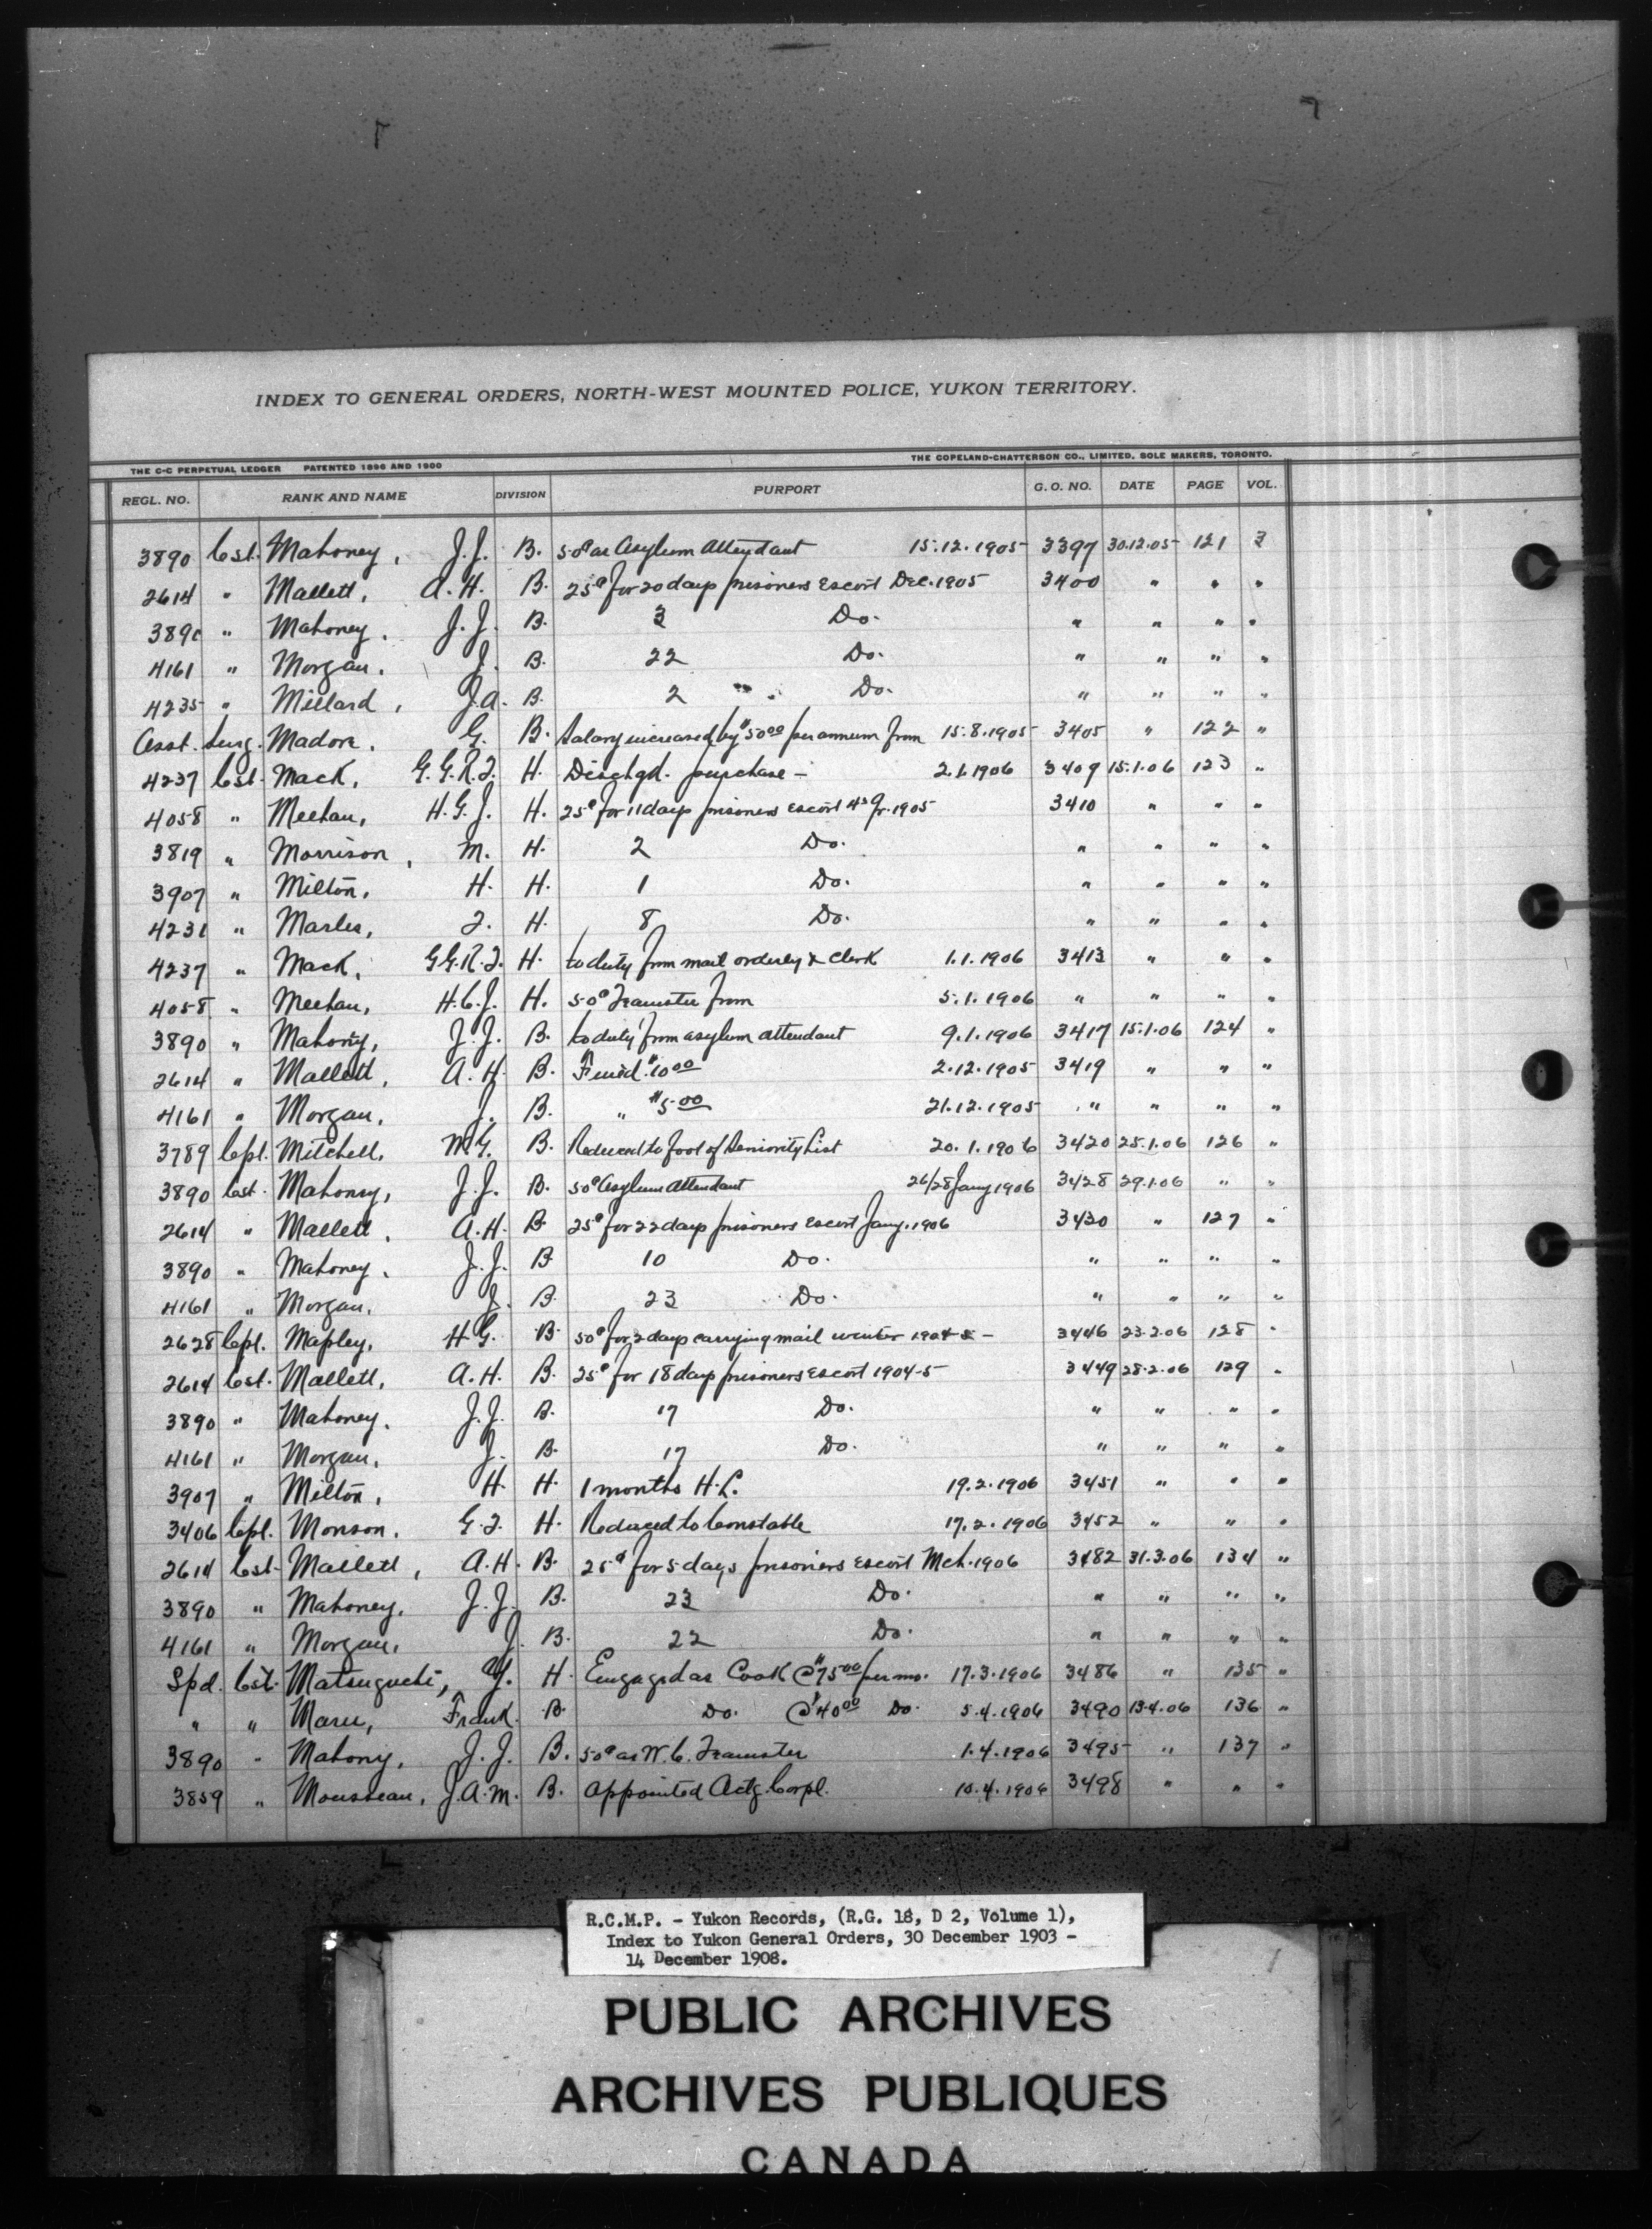 INDEX TO GENERAL ORDERS, NORTH-WEST MOUNTED POLICE, YUKON TERRITORY.
THE C-C PERPETUAL LEDGER PATENTED 1896 AND 1900 THE COPELAND-CHATTERSON CO., LIMITED, SOLE MAKERS, TORONTO.
REGL. NO. RANK AND NAME DIVISION PURPORT G. O. NO. DATE PAGE VOL.
3890 Cst. Mahoney, J.J. B. 50¢ as Asylum Attendant 15.12.1905 3397 30.12.05 121 3
2614 " Mallett, A.H. B. 25¢ for 20 days prisoners escort Dec. 1905 3400 " " "
3890 " Mahoney, J.J. B. 3 Do. " " " "
4161 " Morgan, J. B. 22 Do. " " " "
4235 " Millard, J.A. B. 2 Do. " " " "
Asst. Surg. Madore, G. B. Salary increased by $50⁰⁰ per annum from 15.8.1905 3405 " 122 "
4237 Cst. Mack, G.G.R.F. H. Dischgd. purchase - 2.1.1906 3409 15.1.06 123 "
4058 " Meehan, H.G.J. H. 25¢ for 11 days prisoners escort 4th Qr. 1905 3410 " " "
3819 " Morrison, M. H. 2 Do. " " " "
3907 " Milton, H. H. 1 Do. " " " "
4231 " Marles, F. H. 8 Do. " " " "
4237 " Mack, G.G.R.F. H. to duty from mail orderly & Clerk 1.1.1906 3413 " " "
4058 " Meehan, H.C.J. H. 50¢ Teamster from 5.1.1906 " " " "
3890 " Mahony, J.J. B. to duty from asylum attendant 9.1.1906 3417 15.1.06 124 "
2614 " Mallett, A.H. B. Fined $10⁰⁰ 2.12.1905 3419 " " "
4161 " Morgan, J. B. " $5.00 21.12.1905 " " " "
3789 Cpl. Mitchell, M.G. B. Reduced to foot of Seniority List 20.1.1906 3420 25.1.06 126 "
3890 Cst. Mahoney, J.J. B. 50¢ Asylum Attendant 26/28 Jany 1906 3428 29.1.06 " "
2614 " Mallett, A.H. B. 25¢ for 22 days prisoners escort Jany. 1906 3430 " 127 "
3890 " Mahoney, J.J. B. 10 Do. " " " "
4161 " Morgan, J. B. 23 Do. " " " "
2628 Cpl. Mapley, H.G. B. 50¢ for 2 days carrying mail winter 1904-5 - 3446 23.2.06 128 "
2614 Cst. Mallett, A.H. B. 25¢ for 18 days prisoners escort 1904-5 3449 28.2.06 129 "
3890 " Mahoney, J.J. B. 17 Do. " " " "
4161 " Morgan, J. B. 17 Do. " " " "
3907 " Milton, H. H. 1 months H.L. 19.2.1906 3451 " " "
3406 Cpl. Monson, G.F. H. Reduced to Constable 17.2.1906 3452 " " "
2614 Cst. Mallett, A.H. B. 25¢ for 5 days prisoners escort Mch. 1906 3482 31.3.06 134 "
3890 " Mahoney, J.J. B. 23 Do. " " " "
4161 " Morgan, J. B. 22 Do. " " " "
Spd. Cst. Matsuguchi, Y. H. Engaged as Cook @ $75⁰⁰ per mo. 17.3.1906 3486 " 135 "
" " Maru, Frank. B. Do. @ $40⁰⁰ Do. 5.4.1906 3490 13.4.06 136 "
3890 " Mahony, J.J. B. 50¢ as W.C. Teamster 1.4.1906 3495 " 137 "
3859 " Mousseau, J.A.M. B. Appointed Actg. Corpl. 10.4.1906 3498 " " "
R.C.M.P. - Yukon Records, (R.G. 18, D 2, Volume 1),
Index to Yukon General Orders, 30 December 1903 -
14 December 1908.
PUBLIC ARCHIVES
ARCHIVES PUBLIQUES
CANADA